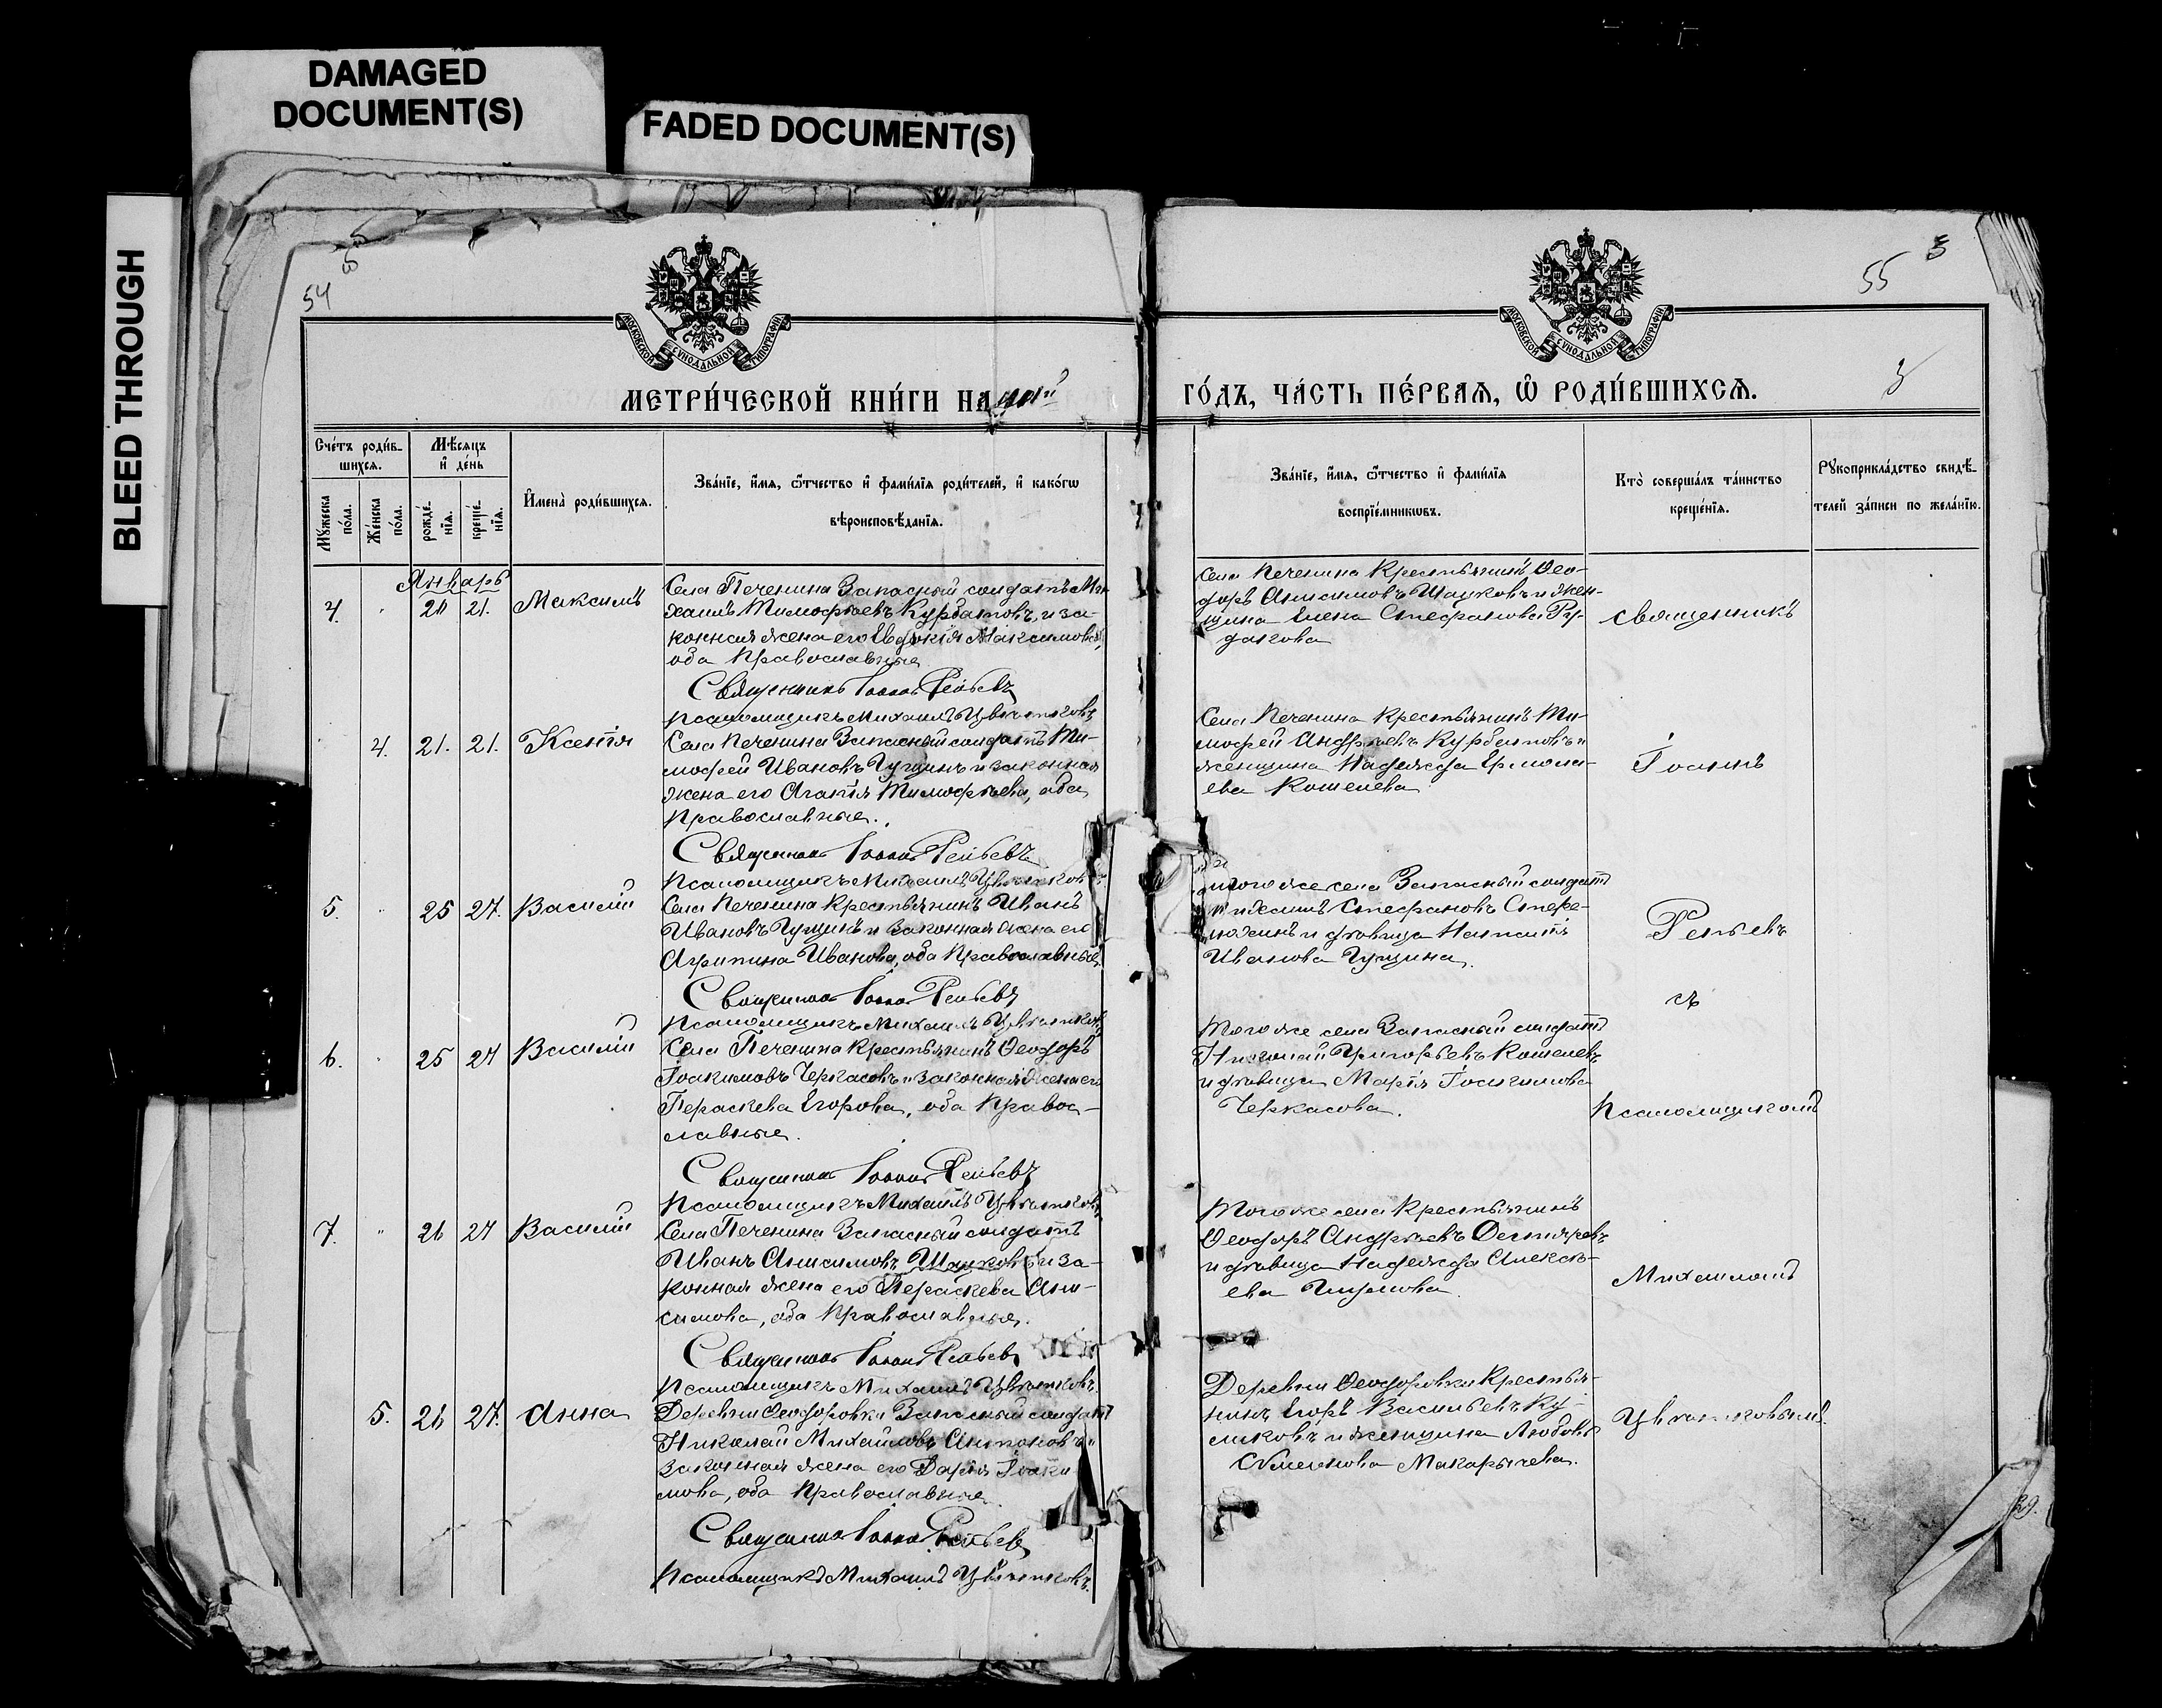 DAMAGED
DOCUMENT(S)
FADED DOCUMENT(S)
BLEED THROUGH
54
55
3
МОСКОВСКОЙ СѴНОДАЛЬНОЙ ТИПОГРАФІИ
МОСКОВСКОЙ СѴНОДАЛЬНОЙ ТИПОГРАФІИ
МЕТРИ́ЧЕСКОЙ КНИ́ГИ НА
ГО́ДЪ, ЧА́СТЬ ПЕ́РВАЯ, Ѡ РОДИ́ВШИХСѦ.
Сче́тъ роди́в-
шихсѧ.
Мꙋ́жеска по́ла.
Же́нска по́ла.
Мѣ́сѧцъ
и҆ де́нь
рожде́-
нїѧ.
креще́-
нїѧ.
И҆мена̀ роди́вшихсѧ.
Зва́нїе, и҆́мѧ, ѻ҆́тчество и҆ фами́лїѧ роди́телей, и҆ како́гѡ
вѣроисповѣ́данїѧ.
Зва́нїе, и҆́мѧ, ѻ҆́тчество и҆ фами́лїѧ
воспрїе́мникѡвъ.
Кто̀ соверша́лъ та́инство
креще́нїѧ.
Рꙋкоприкла́дство свидѣ́-
телей за́писи по жела́нїю.
Январь
4. " 20 21. Максимъ
Села Печенина Запасный солдатъ Ми-
хаилъ Тимофѣевъ Курбатовъ, и за-
конная жена его Евдокія Максимова,
оба Православные
Священникъ Іоаннъ Репьевъ
Псаломщикъ Михаилъ Цвѣтковъ
Села Печенина Крестьянинъ Ѳео-
доръ Анисимовъ Шацковъ и жен-
щина Елена Стефанова Ру-
дакова
4. 21. 21. Ксенія
Села Печенина Запасный солдатъ Ти-
мофей Ивановъ Гущинъ и законная
жена его Агапія Тимофѣева, оба
Православные.
Священникъ Іоаннъ Репьевъ
Псаломщикъ Михаилъ Цвѣтковъ
Села Печенина Крестьянинъ Ти-
мофей Андреевъ Курбатовъ и
женщина Надежда Ермола-
ева Кошелева
5. " 25 27. Василій
Села Печенина Крестьянинъ Иванъ
Ивановъ Гущинъ и законная жена его
Агрипина Иванова, оба Православные.
Священникъ Іоаннъ Репьевъ
Псаломщикъ Михаилъ Цвѣтковъ
Того же села Запасный солдатъ
Михаилъ Стефановъ
и дѣвица Наталія
Иванова Гущина.
6. " 25 27 Василій
Села Печенина Крестьянинъ Ѳеодоръ
Іоакимовъ Черкасовъ и законная жена его
Параскева Егорова, оба Правос-
лавные.
Священникъ Іоаннъ Репьевъ
Псаломщикъ Михаилъ Цвѣтковъ
Того же села Запасный солдатъ
Николай Григорьевъ Кошелевъ
и дѣвица Марія Іоакимова
Черкасова.
7. " 26 27 Василій
Села Печенина Запасный солдатъ
Иванъ Анисимовъ Шацковъ и за-
конная жена его Параскева Ани-
симова, оба Православные.
Священникъ Іоаннъ Репьевъ
Псаломщикъ Михаилъ Цвѣтковъ.
Того же села Крестьянинъ
Ѳеодоръ Андреевъ Дегтяревъ
и дѣвица Надежда Алексѣ-
ева
5. 26 27. Анна
Деревни Ѳеодоровки Запасный солдатъ
Николай Михайловъ Антоновъ и
законная жена его Дарія Іоаки-
мова, оба Православные.
Священникъ Іоаннъ Репьевъ
Псаломщикъ Михаилъ Цвѣтковъ.
Деревни Ѳеодоровки Крестья-
нинъ Егоръ Васильевъ Ку-
ликовъ и женщина Любовь
Симеонова Макарычева.
Священникъ
Іоаннъ
Репьевъ
съ
Псаломщикомъ
Михаиломъ
Цвѣтковымъ.